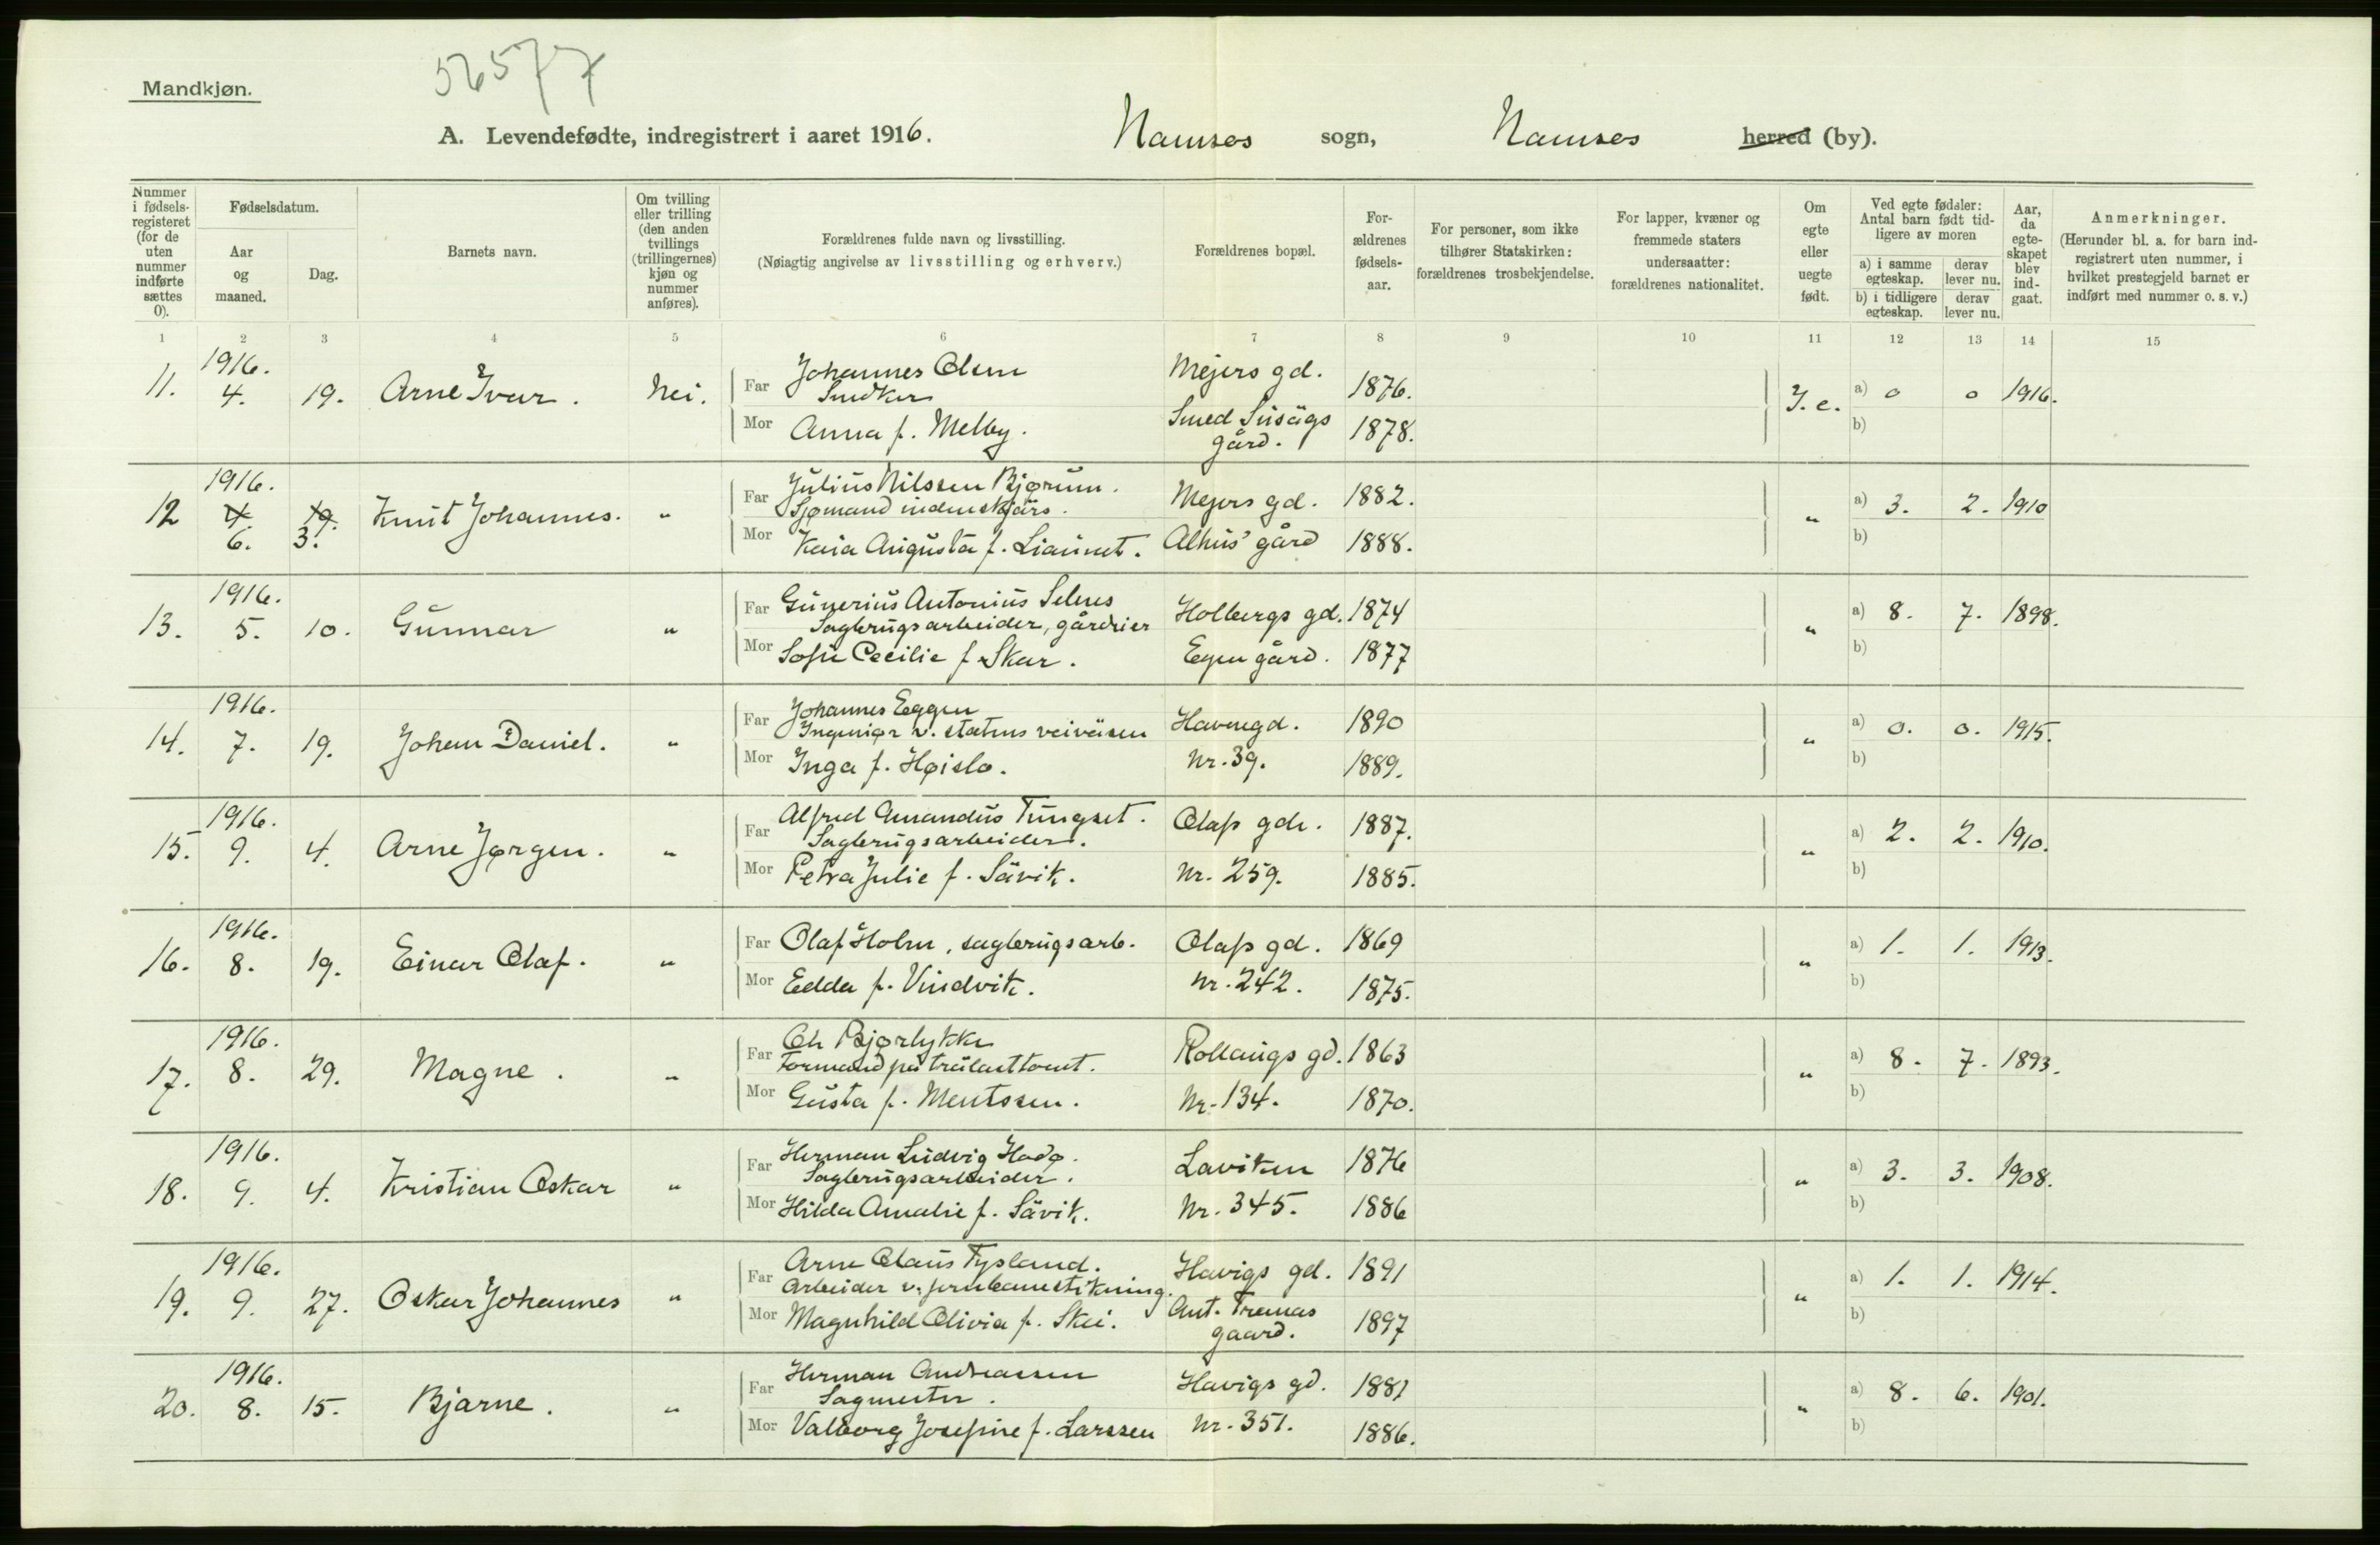 Mandkjøn.
56577
A. Levendefødte, indregistrert i aaret 1916. Namsos sogn, Namsos herred (by).
Nummer i fødsels-registeret (for de uten nummer indførte sættes 0).
Fødselsdatum.
Aar og maaned.
Dag.
Barnets navn.
Om tvilling eller trilling (den anden tvillings (trillingernes) kjøn og nummer anføres).
Forældrenes fulde navn og livsstilling.
(Nøiagtig angivelse av livsstilling og erhverv.)
Forældrenes bopæl.
For-ældrenes fødsels-aar.
For personer, som ikke tilhører Statskirken: forældrenes trosbekjendelse.
For lapper, kvæner og fremmede staters undersaatter: forældrenes nationalitet.
Om egte eller uegte født.
Ved egte fødsler: Antal barn født tid-ligere av moren
a) i samme egteskap. derav lever nu.
b) i tidligere egteskap. derav lever nu.
Aar, da egte-skapet blev ind-gaat.
Anmerkninger.
(Herunder bl. a. for barn ind-registrert uten nummer, i hvilket prestegjeld barnet er indført med nummer o. s. v.)
1 2 3 4 5 6 7 8 9 10 11 12 13 14 15
1916.
11. 4. 19. Arne Ivar. Nei. Far Johannes Olsen Mejers gd. 1876. J. e. a) 0 0 1916.
Snedker
Mor Anna f. Melby. Smed gård. 1878. b)
1916.
12 4. 19. Knut Johannes. " Far Julius Nilssen Bjørum. Mejers gd. 1882. " a) 3. 2. 1910
6. 3. Sjømand indenskjärs.
Mor Kaia Augusta f. Liaunet. Alhus' gård 1888. b)
1916.
13. 5. 10. Gunnar " Far Gunerius Antonius Selnes Holbergs gd. 1874 " a) 8. 7. 1898.
Sagbrugsarbeider, gårdeier
Mor Sofie Cecilie f. Skar. Egen gård. 1877 b)
1916.
14. 7. 19. Johan Daniel. " Far Johannes Eggen Havnegd. 1890 " a) 0. 0. 1915.
Ingeniør v. statens veivæsen
Mor Inga f. Høislo. Nr. 39. 1889. b)
1916.
15. 9. 4. Arne Jørgen. " Far Alfred Amandus Tungset. Olafs gde. 1887. " a) 2. 2. 1910.
Sagbrugsarbeider.
Mor Petra Julie f. Sävik. Nr. 259. 1885. b)
1916.
16. 8. 19. Einar Olaf. " Far Olaf Holm, sagbrugsarb. Olafs gd. 1869 " a) 1. 1. 1913.
Mor Edda f. Vindvik. Nr. 242. 1875. b)
1916.
17. 8. 29. Magne. " Far Ole Bjørlykke Rollaugs gd. 1863 " a) 8. 7. 1893.
Formand på trælasttomt.
Mor Gusta f. Mentssen. Nr. 134. 1870. b)
1916.
18. 9. 4. Kristian Oskar " Far Herman Ludvig Hodø. Laviken 1876 " a) 3. 3. 1908.
Sagbrugsarbeider.
Mor Hilda Amalie f. Sävik. Nr. 345. 1886 b)
1916.
19. 9. 27. Oskar Johannes " Far Arne Olaus Tysland. Havigs gd. 1891 " a) 1. 1. 1914.
Arbeider v. jernbanestikning.
Mor Magnhild Olivia f. Skei. Ant. gaard. 1897 b)
1916.
20. 8. 15. Bjarne. " Far Herman Andreassen Havigs gd. 1881 " a) 8. 6. 1901.
Sagmester.
Mor Valborg Josefine f. Larssen Nr. 351. 1886. b)